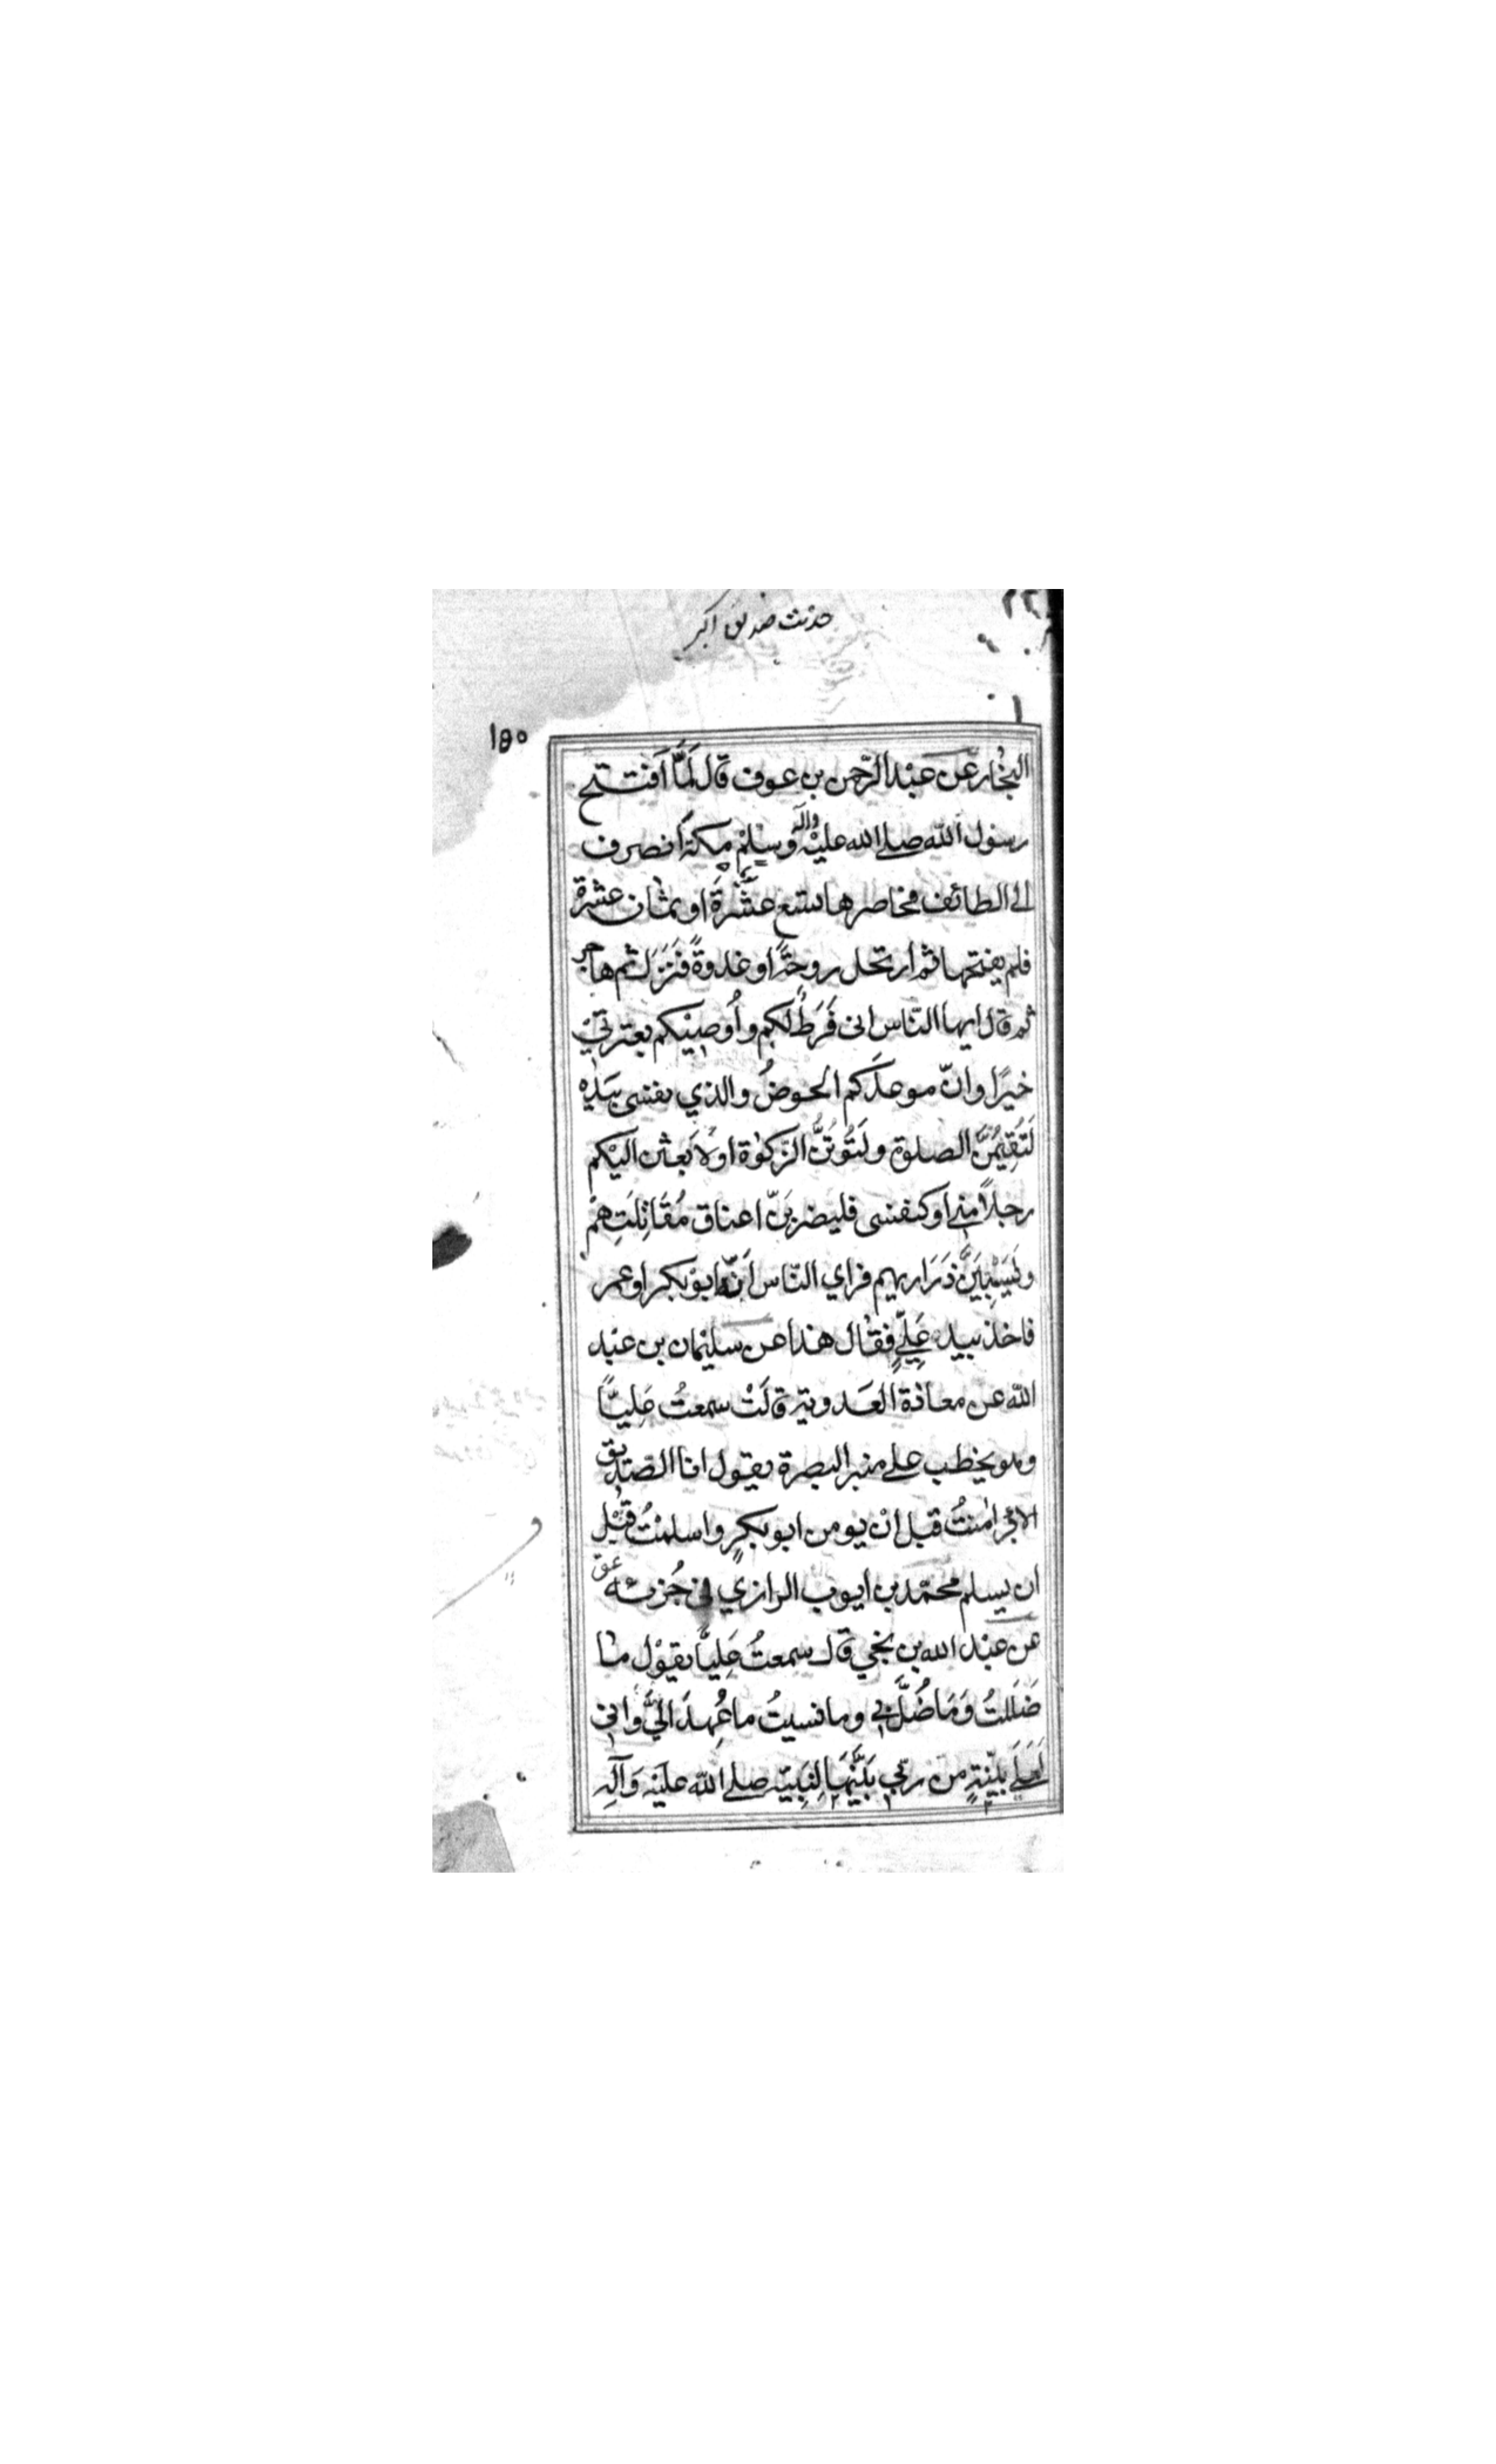 حدیث صدیق اکبر
١٥٠
البخار عن عبد الرّحمن بن عوف قال لَمَّا افتتح
رسول الله صلے الله عليْه واله وسلم مكةَ انصرف
الى الطائف فحاصرها تسع عشَرةَ او ثمان عشرة
فلم يفتحها ثم ارتحل روحةً او غدوةً فَنَزَلَ ثم هاجر
ثم قال ايها النّاس انى فَرَطٌ لكم و أُوصيْكم بعترتيْ
خيرًا وانّ موعدَكم الحوضُ والذي نفسى بيَدِهٖ
لَتُقِيْمُنَّ الصلوة ولَتُوتُنَّ الزّكوٰة او لاَبعثن اليْكم
رجلاً منے او كنفسى فليضربَنّ اعناق مُقَاتِلَتِهِمْ
ولَيَسْبِيَنَّ ذَرَاريهم فراي النّاس اَنّه ابو بكر او عمر
فاخذ بيد عَلِيٍّ فقال هذا عن سليمان بن عبْد
الله عن معاذة العَدوية قالَتْ سمعتُ عَلِيًّا
وهو يخطب على منبر البصرة يقول انا الصّديق
الاكبر اٰمنتُ قبل انْ يومن ابو بكرٍ واسلمْتُ قبْل
ان يسلم محمّد بن ايوب الرازي فى جُزئه عق
عن عبْد الله بن نجي قال سمعتُ عَلِيًّا يقوْل ما
ضَلَلتُ وَمَا ضُلَّ بى وما نسيتُ ما عُهِدَ الَيَّ وَانى
لَعَلَے بيّنةٍ من ربّي بَيَّنَهَا لِنَبِيّه صلے الله عليْه وَآلِهٖ